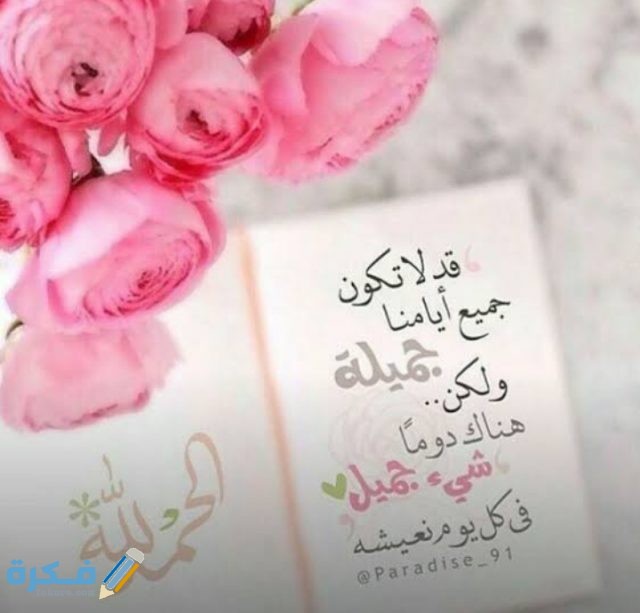 قد لا تكون
جميع أيامنا
جميلة
ولكن..
هناك دومًا
شيء جميل
في كل يوم نعيشه
@Paradise_91
الحمد لله
فكرة